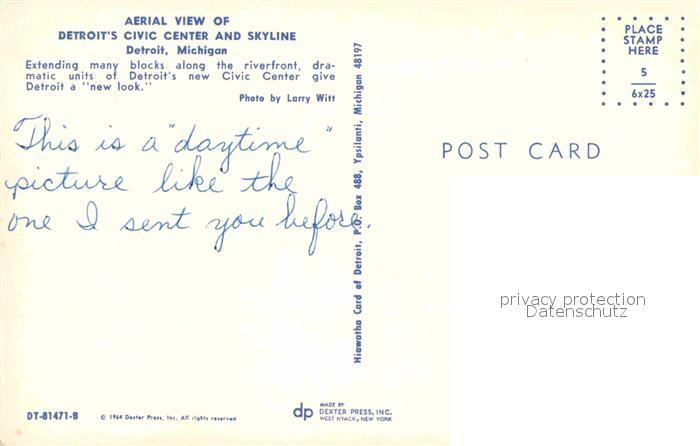 AERIAL VIEW OF
DETROIT'S CIVIC CENTER AND SKYLINE
Detroit, Michigan
Extending many blocks along the riverfront, dra-
matic units of Detroit's new Civic Center give
Detroit a "new look."
Photo by Larry Witt
This is a "daytime"
picture like the
one I sent you before.
DT-81471-B
© 1964 Dexter Press, Inc. All rights reserved
dp
MADE BY
DEXTER PRESS, INC.
WEST NYACK, NEW YORK
Hiawatha Card of Detroit, P.O. Box 488, Ypsilanti, Michigan 48197
PLACE
STAMP
HERE
5
6x25
POST CARD
privacy protection
Datenschutz